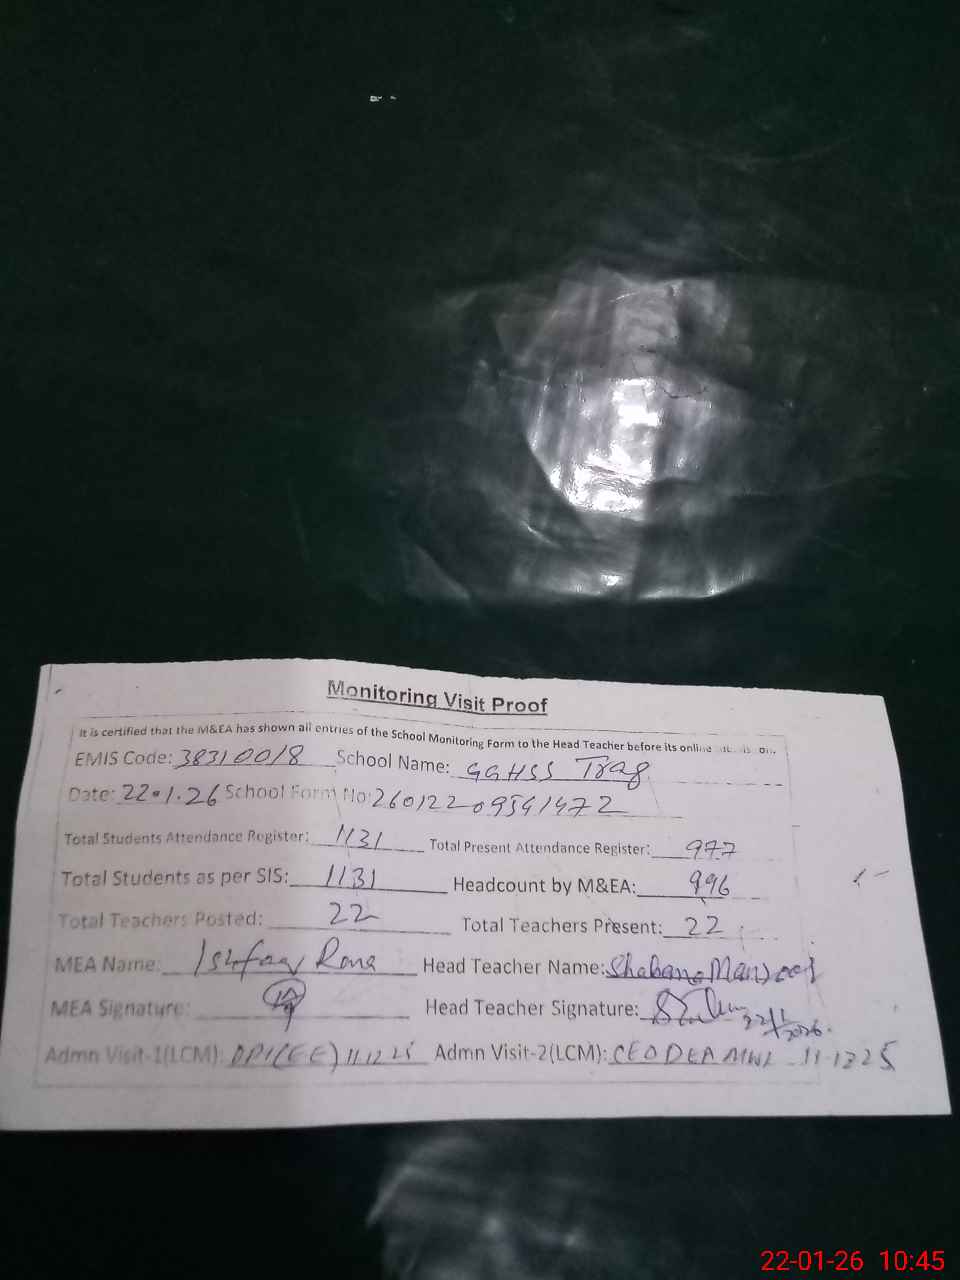 Monitoring Visit Proof
It is certified that the M&EA has shown all entries of the School Monitoring Form to the Head Teacher before its online
EMIS Code: 38310018 School Name: GGHSS Trag
Date: 22.1.26 School Form No: 26012209541472
Total Students Attendance Register: 1131 Total Present Attendance Register: 977
Total Students as per SIS: 1131 Headcount by M&EA: 996
Total Teachers Posted: 22 Total Teachers Present: 22
MEA Name: Ishfaq Rana Head Teacher Name: Shabana Manzoor
MEA Signature: Head Teacher Signature: 22/1/2026.
Admn Visit-1(LCM): DPI(EE) 11.12.25 Admn Visit-2(LCM): CEO DEA MWI 11-12 25
22-01-26 10:45